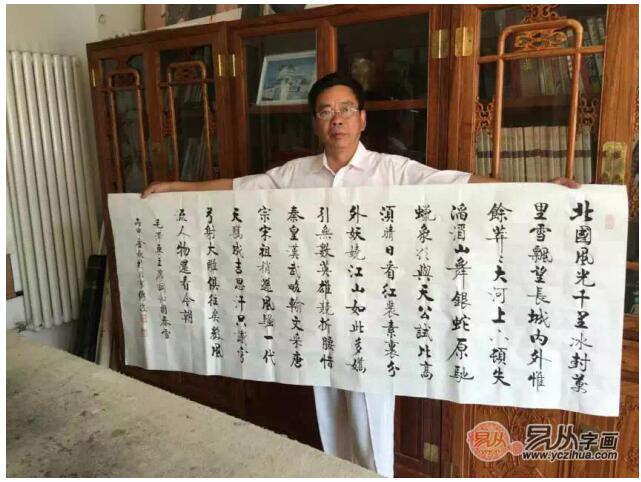 北國風光千里冰封萬
里雪飄望長城內外惟
餘莽々大河上下頓失
滔滔山舞銀蛇原馳
蠟象欲與天公試比高
須晴日看紅裝素裹分
外妖嬈江山如此多嬌
引無數英雄競折腰惜
秦皇漢武略輸文采唐
宗宋祖稍遜風騷一代
天驕成吉思汗只識彎
弓射大雕俱往矣數風
流人物還看今朝
毛澤東主席詞沁園春雪
丙申金秋
易从
易从字画
www.yczihua.com